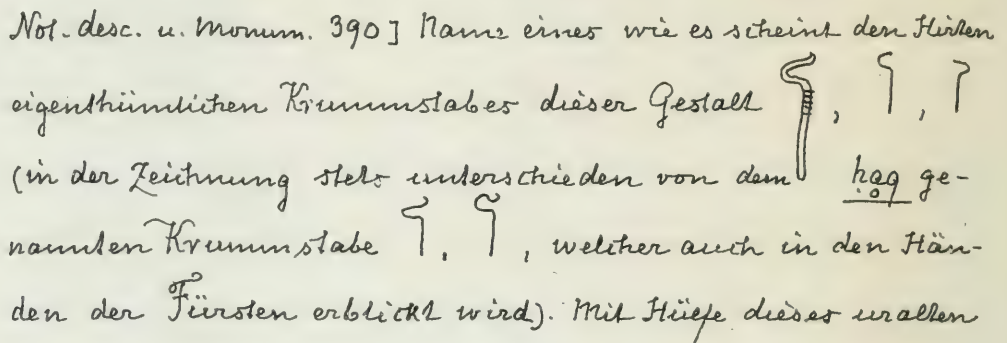 Not. desc. u. Monum. 390] Name eines wie es scheint den Hirten
eigenthümlichen Krummstabes dieser Gestalt 𓋿, 𓋾, 𓋾
(in der Zeichnung stets unterschieden von dem ḥaq ge-
nannten Krummstabe 𓋾, 𓋾, welcher auch in den Hän-
den der Fürsten erblickt wird). Mit Hülfe dieses uralten